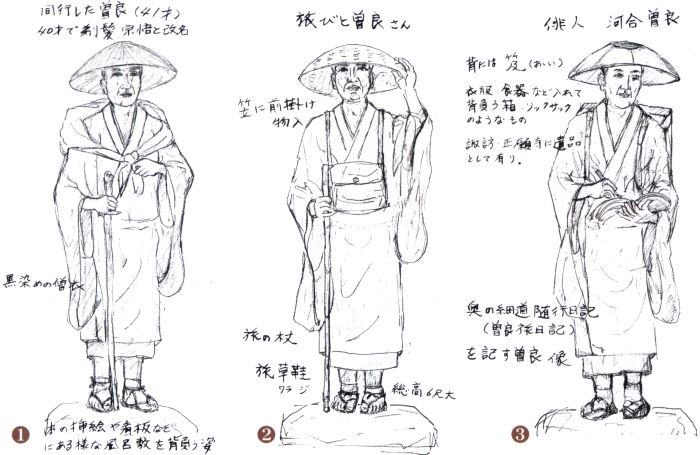 同行した曽良(41才)
40才で剃髪 宗悟と改名
黒染めの僧衣
本の挿絵や看板など
にある様な風呂敷を背負う姿
1
旅びと曽良さん
笠に前掛け
物入
旅の杖
旅草鞋
ワラジ
総高6尺大
2
俳人 河合曽良
背には笈(おい)
衣服 食器などを入れて
背負う箱 リックサック
のようなもの
諏訪・正願寺に遺品
として有り。
奥の細道随行日記
(曽良旅日記)
を記す曽良像
3